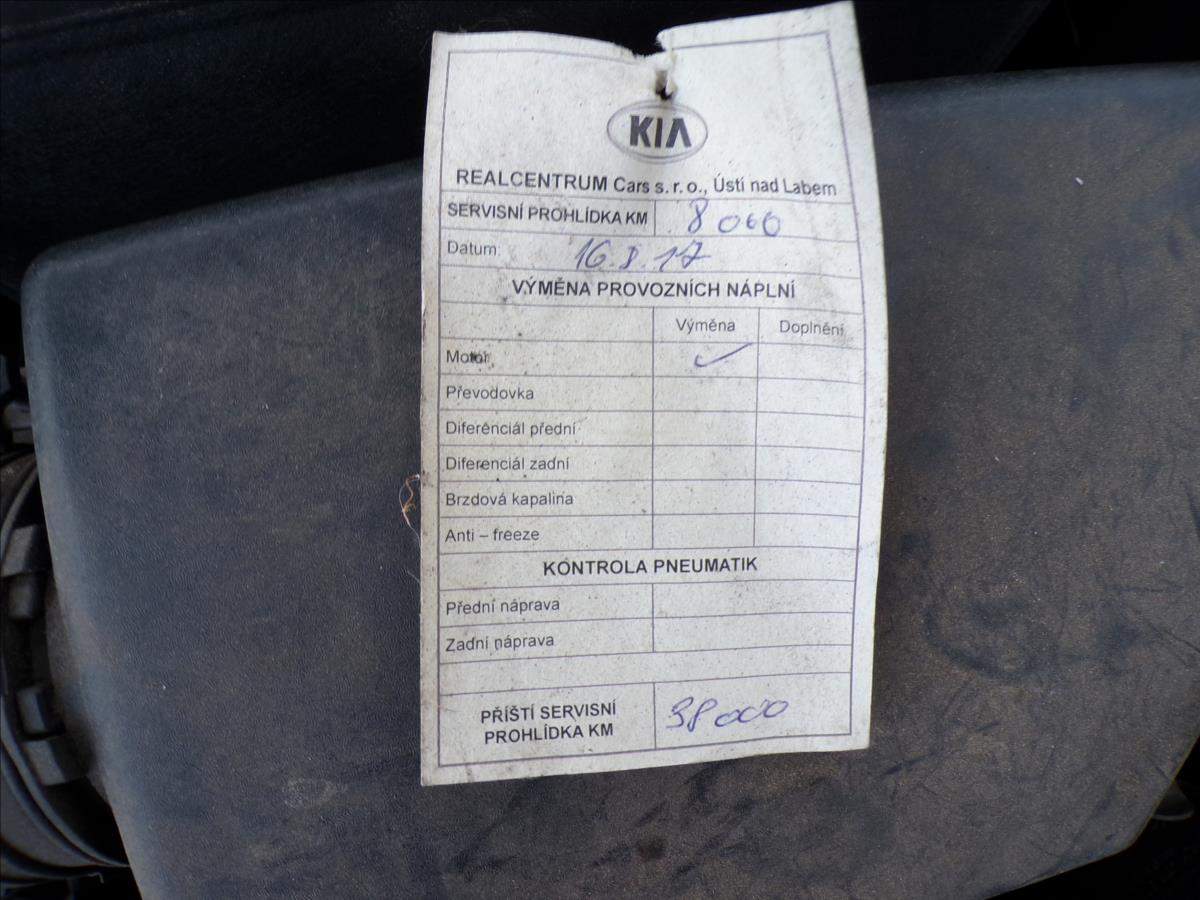 KIA
REALCENTRUM Cars s. r. o., Ústí nad Labem
SERVISNÍ PROHLÍDKA KM 8 000
Datum: 16.8.17
VÝMĚNA PROVOZNÍCH NÁPLNÍ
Výměna Doplnění
Motor ✓
Převodovka
Diferenciál přední
Diferenciál zadní
Brzdová kapalina
Anti – freeze
KONTROLA PNEUMATIK
Přední náprava
Zadní náprava
PŘÍŠTÍ SERVISNÍ
PROHLÍDKA KM 38 000